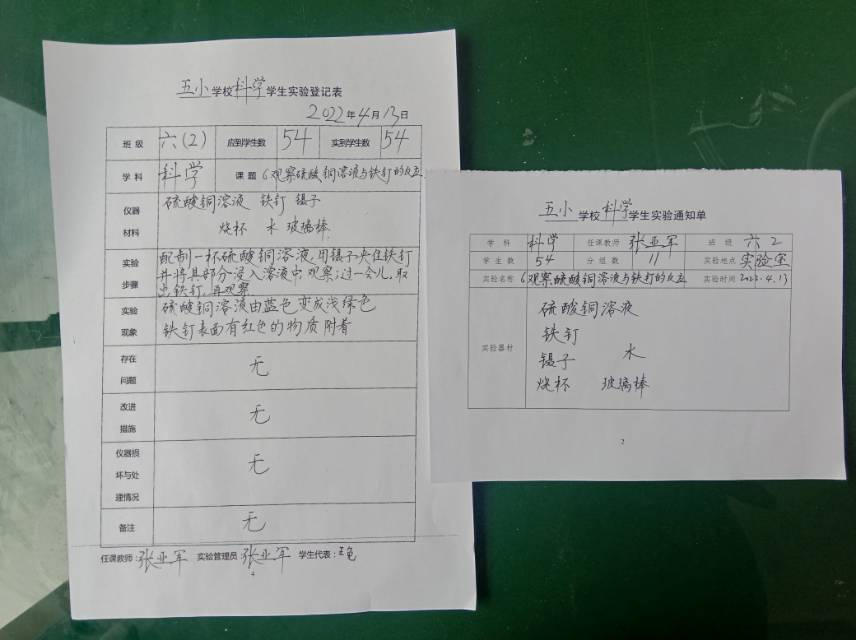 五小学校科学学生实验登记表
2022年4月13日
班级 六(2) 应到学生数 54 实到学生数 54
学科 科学 课题 6观察硫酸铜溶液与铁钉的反应
仪器材料 硫酸铜溶液 铁钉 镊子
烧杯 水 玻璃棒
实验步骤 配制一杯硫酸铜溶液,用镊子夹住铁钉
并将其部分浸入溶液中,观察;过一会儿,取
出铁钉,再观察
实验现象 硫酸铜溶液由蓝色变成浅绿色
铁钉表面有红色的物质附着
存在问题 无
改进措施 无
仪器损坏与处理情况 无
备注 无
任课教师:张亚军 实验管理员:张亚军 学生代表:
4
五小学校科学学生实验通知单
学科 科学 任课教师 张亚军 班级 六2
学生数 54 分组数 11 实验地点 实验室
实验名称 6观察硫酸铜溶液与铁钉的反应 实验时间 2022.4.13
实验器材 硫酸铜溶液
铁钉
镊子 水
烧杯 玻璃棒
2